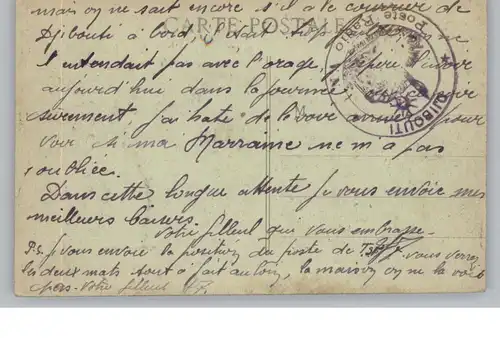 mais on ne sait encore s'il a le courrier de
CARTE POSTALE
Djibouti à bord,
l'entendait pas avec l'orage, j'espère l'avoir
aujourd'hui dans la journée
surement, j'ai hate de le voir arriver pour
voir si ma Marraine ne m'a pas
oubliée.
Dans cette longue attente je vous envoie mes
meilleurs baisers.
Votre filleul qui vous embrasse.
P.S. je vous envoie la position du poste de T.S.F. vous verrez
les deux mats tout à fait au loin, la maison on ne la voit
pas. Votre filleul
Poste Radio
DJIBOUTI